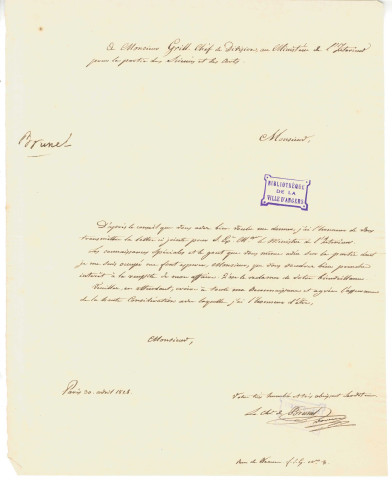 A Monsieur Grill Chef de Division au Ministère de l'Intérieur
pour la partie des Sciences et des Arts.
Brunet
Monsieur,
BIBLIOTHÈQUE
DE LA
VILLE D'ANGERS
D'après le conseil que vous avez bien voulu me donner, j'ai l'honneur de vous
transmettre la lettre ci jointe pour S. Ex. le Ministre de l'Intérieur.
Les connaissances spéciales et le goût que vous avez pour la partie dont
je me suis occupé me font espérer, Monsieur, que vous voudrez bien prendre
intérêt à la de mon affaire. de votre bienveillance.
Veuillez, en attendant, croire à toute ma reconnaissance et agréer l'assurance
de la haute Considération avec laquelle j'ai l'honneur d'être,
Monsieur,
Paris 20. avril 1828.
Votre très humble et très obéissant Serviteur
Le Ch. de Brunet
rue de